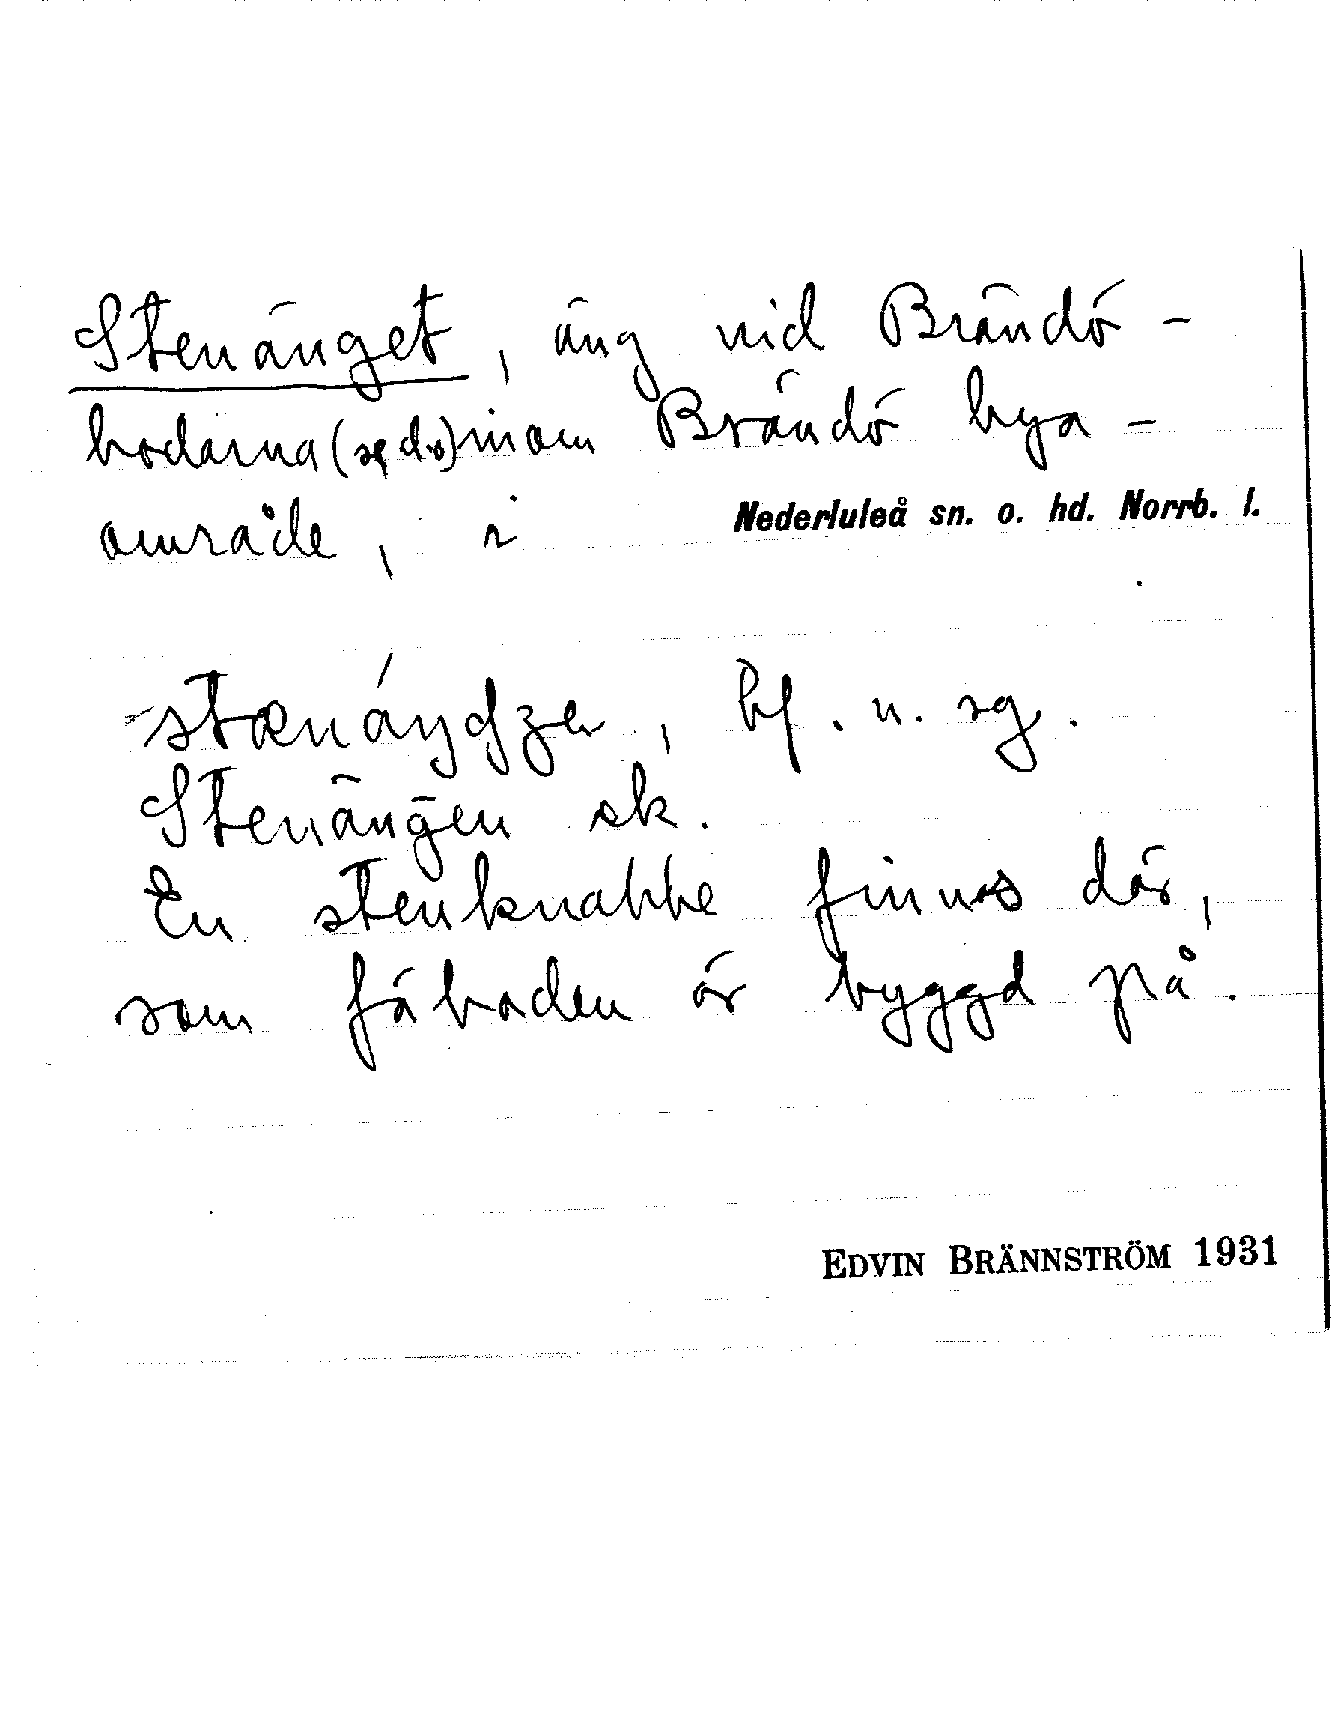 Stenänget, äng vid Brändö-
bodarna (se d.o) inom Brändö bya-
område, i Nederluleå sn. o. hd. Norrb. l.
bf. n. sg.
Stenängen sk.
En stenknabbe finnes där,
som fäboden är byggd på.
EDVIN BRÄNNSTRÖM 1931